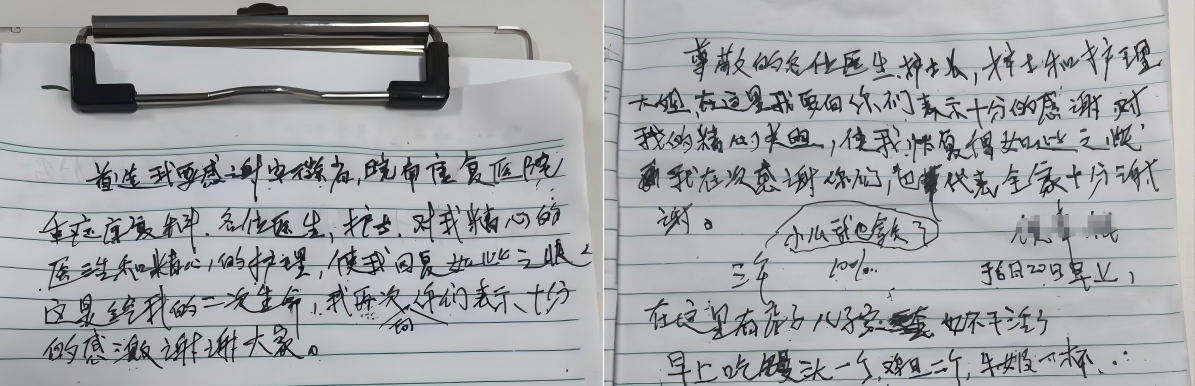 首先我要感谢安徽省,皖南康复医院
重症康复科.各位医生,护士.对我精心的
医治和精心的护理,使我回复如此之快
这是给我的二次生命,我再次向你们表示十分
的感激谢谢大家。
尊敬的各位医生护士长,护士和护理
大姐,在这里我要向你们表示十分的感谢对
我的精心,使我恢复得如此之快
我在次感谢你们,也代表全家十分谢
谢。
小瓜
三年 10%
20日早上,
在这里有 儿子 不干活了
早上吃馒头一个,鸡旦二个,牛奶一杯…